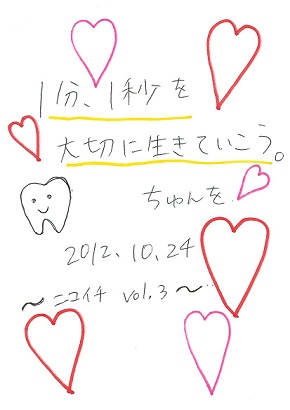 1分、1秒を
大切に生きていこう。
ちゅんを
2012.10.24
〜ニコイチ vol.3〜